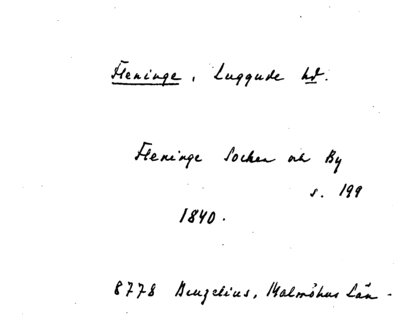 Fleninge, Luggude hd.
Fleninge Socken och By
s. 199
1840.
8778 Bengelius, Malmöhus Län.